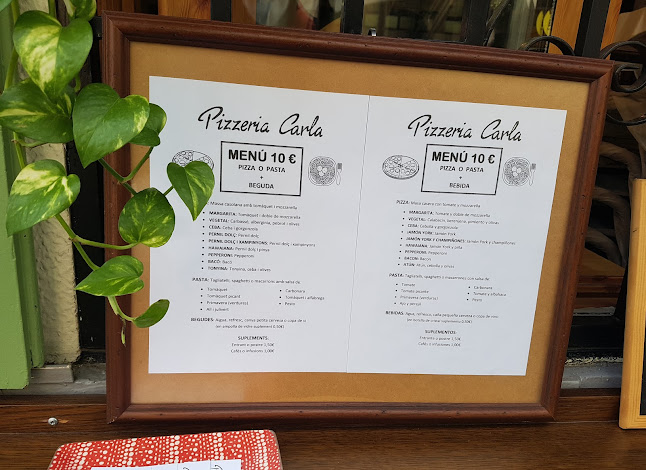 Pizzeria Carla
MENÚ 10 €
PIZZA O PASTA
+
BEGUDA
Massa casolana amb tomàquet i mozzarella
MARGARITA: Tomàquet i dobse de mozzarella
VEGETAL: Carbassó, albergínia, pebrot i olives
CEBA: Ceba i gorgonzola
PERNIL DOLÇ: Pernil dolç
PERNIL DOLÇ I XAMPINYONS: Pernil dolç i xampinyons
HAWAIANA: Pernil dolç i pinya
PEPPERONI: Pepperoni
BACÓ: Bacó
TONYINA: Tonyina, ceba i olives
PASTA: Tagliatelli, spaghetti o macarrons amb salsa de
Tomàquet
Tomàquet picant
Primavera (verdures)
All i julivert
Carbonara
Tomàquet i alfàbrega
Pesto
BEGUDES: Aigua, refresc, canya petita cervesa o copa de vi
(en ampolla de vidre suplement 0,50€)
SUPLEMENTS:
Entrant o postre 3,50€
Cafès o infusions 1,00€
Pizzeria Carla
MENÚ 10 €
PIZZA O PASTA
+
BEBIDA
PIZZA: Masa casera con tomate y mozzarella
MARGARITA: Tomate y dobse de mozzarella
VEGETAL: Calabacín, berenjena, pimiento y olivas
CEBA: Cebolla y gorgonzola
JAMÓN YORK: Jamón York
JAMÓN YORK Y CHAMPIÑONES: Jamón York y champiñones
HAWAIANA: Jamón York y piña
PEPPERONI: Pepperoni
BACON: Bacon
ATÚN: Atún, cebolla y olivas
PASTA: Tagliatelli, spaghetti o macarrones con salsa de
Tomate
Tomate picante
Primavera (verduras)
Ajo y perejil
Carbonara
Tomate y albahaca
Pesto
BEBIDAS: Agua, refresco, caña pequeña cerveza o copa de vino
(en botella de cristal suplemento 0,50€)
SUPLEMENTOS:
Entrante o postre 3,50€
Cafés o infusiones 1,00€